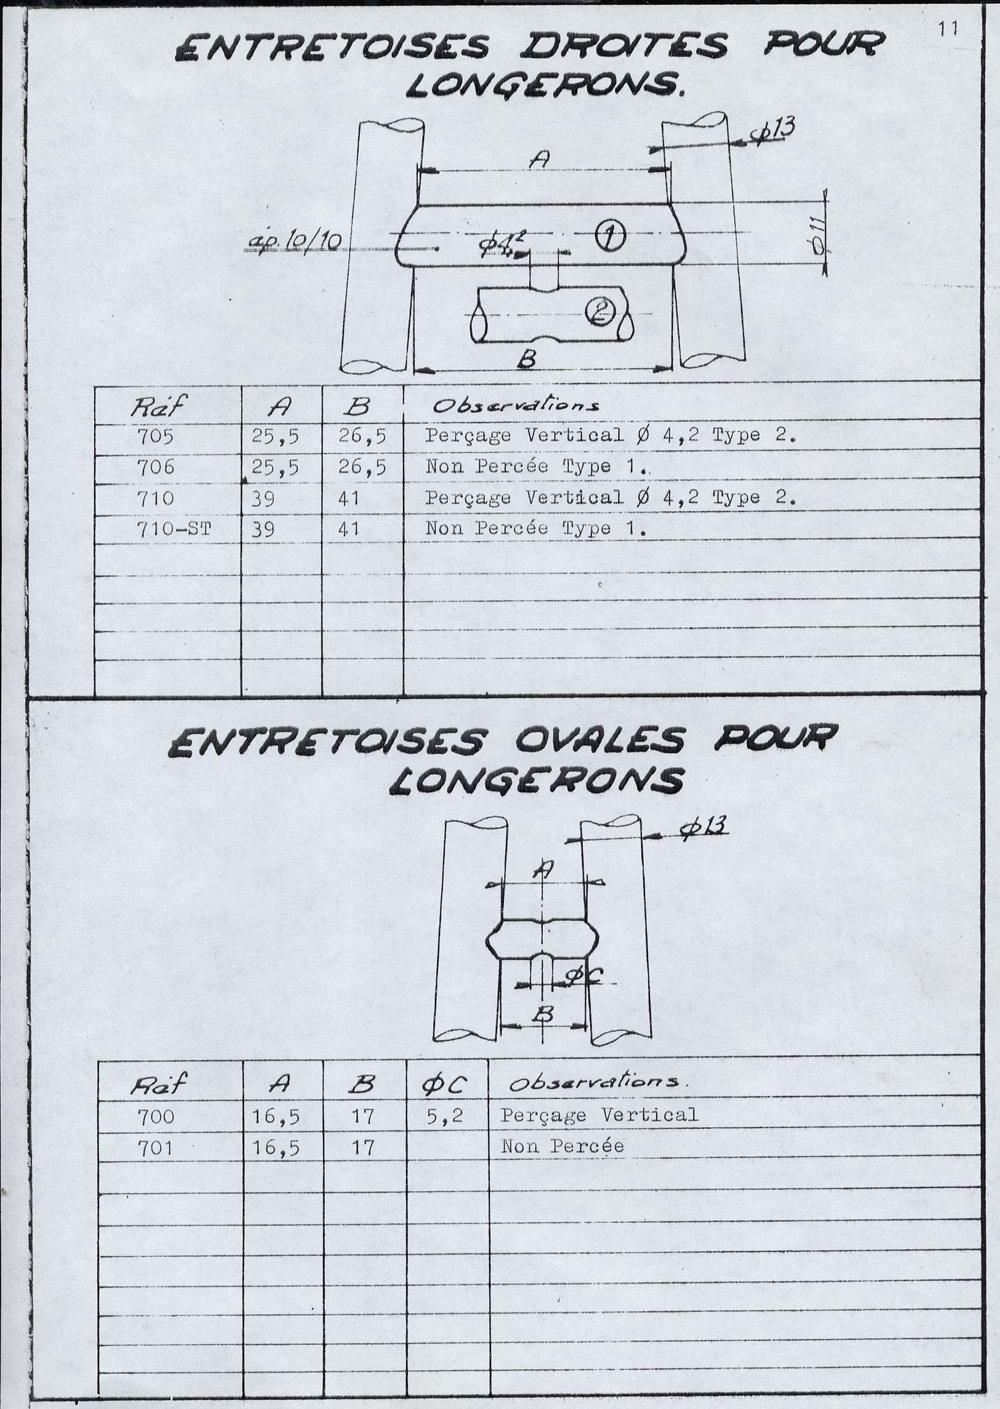 11
ENTRETOISES DROITES POUR
LONGERONS.
ϕ13
A
ép. 10/10
ϕ4,2
1
ϕ11
2
B
Réf A B Observations
705 25,5 26,5 Perçage Vertical Ø 4,2 Type 2.
706 25,5 26,5 Non Percée Type 1.
710 39 41 Perçage Vertical Ø 4,2 Type 2.
710-ST 39 41 Non Percée Type 1.
ENTRETOISES OVALES POUR
LONGERONS
ϕ13
A
ϕC
B
Réf A B ϕC Observations.
700 16,5 17 5,2 Perçage Vertical
701 16,5 17 Non Percée